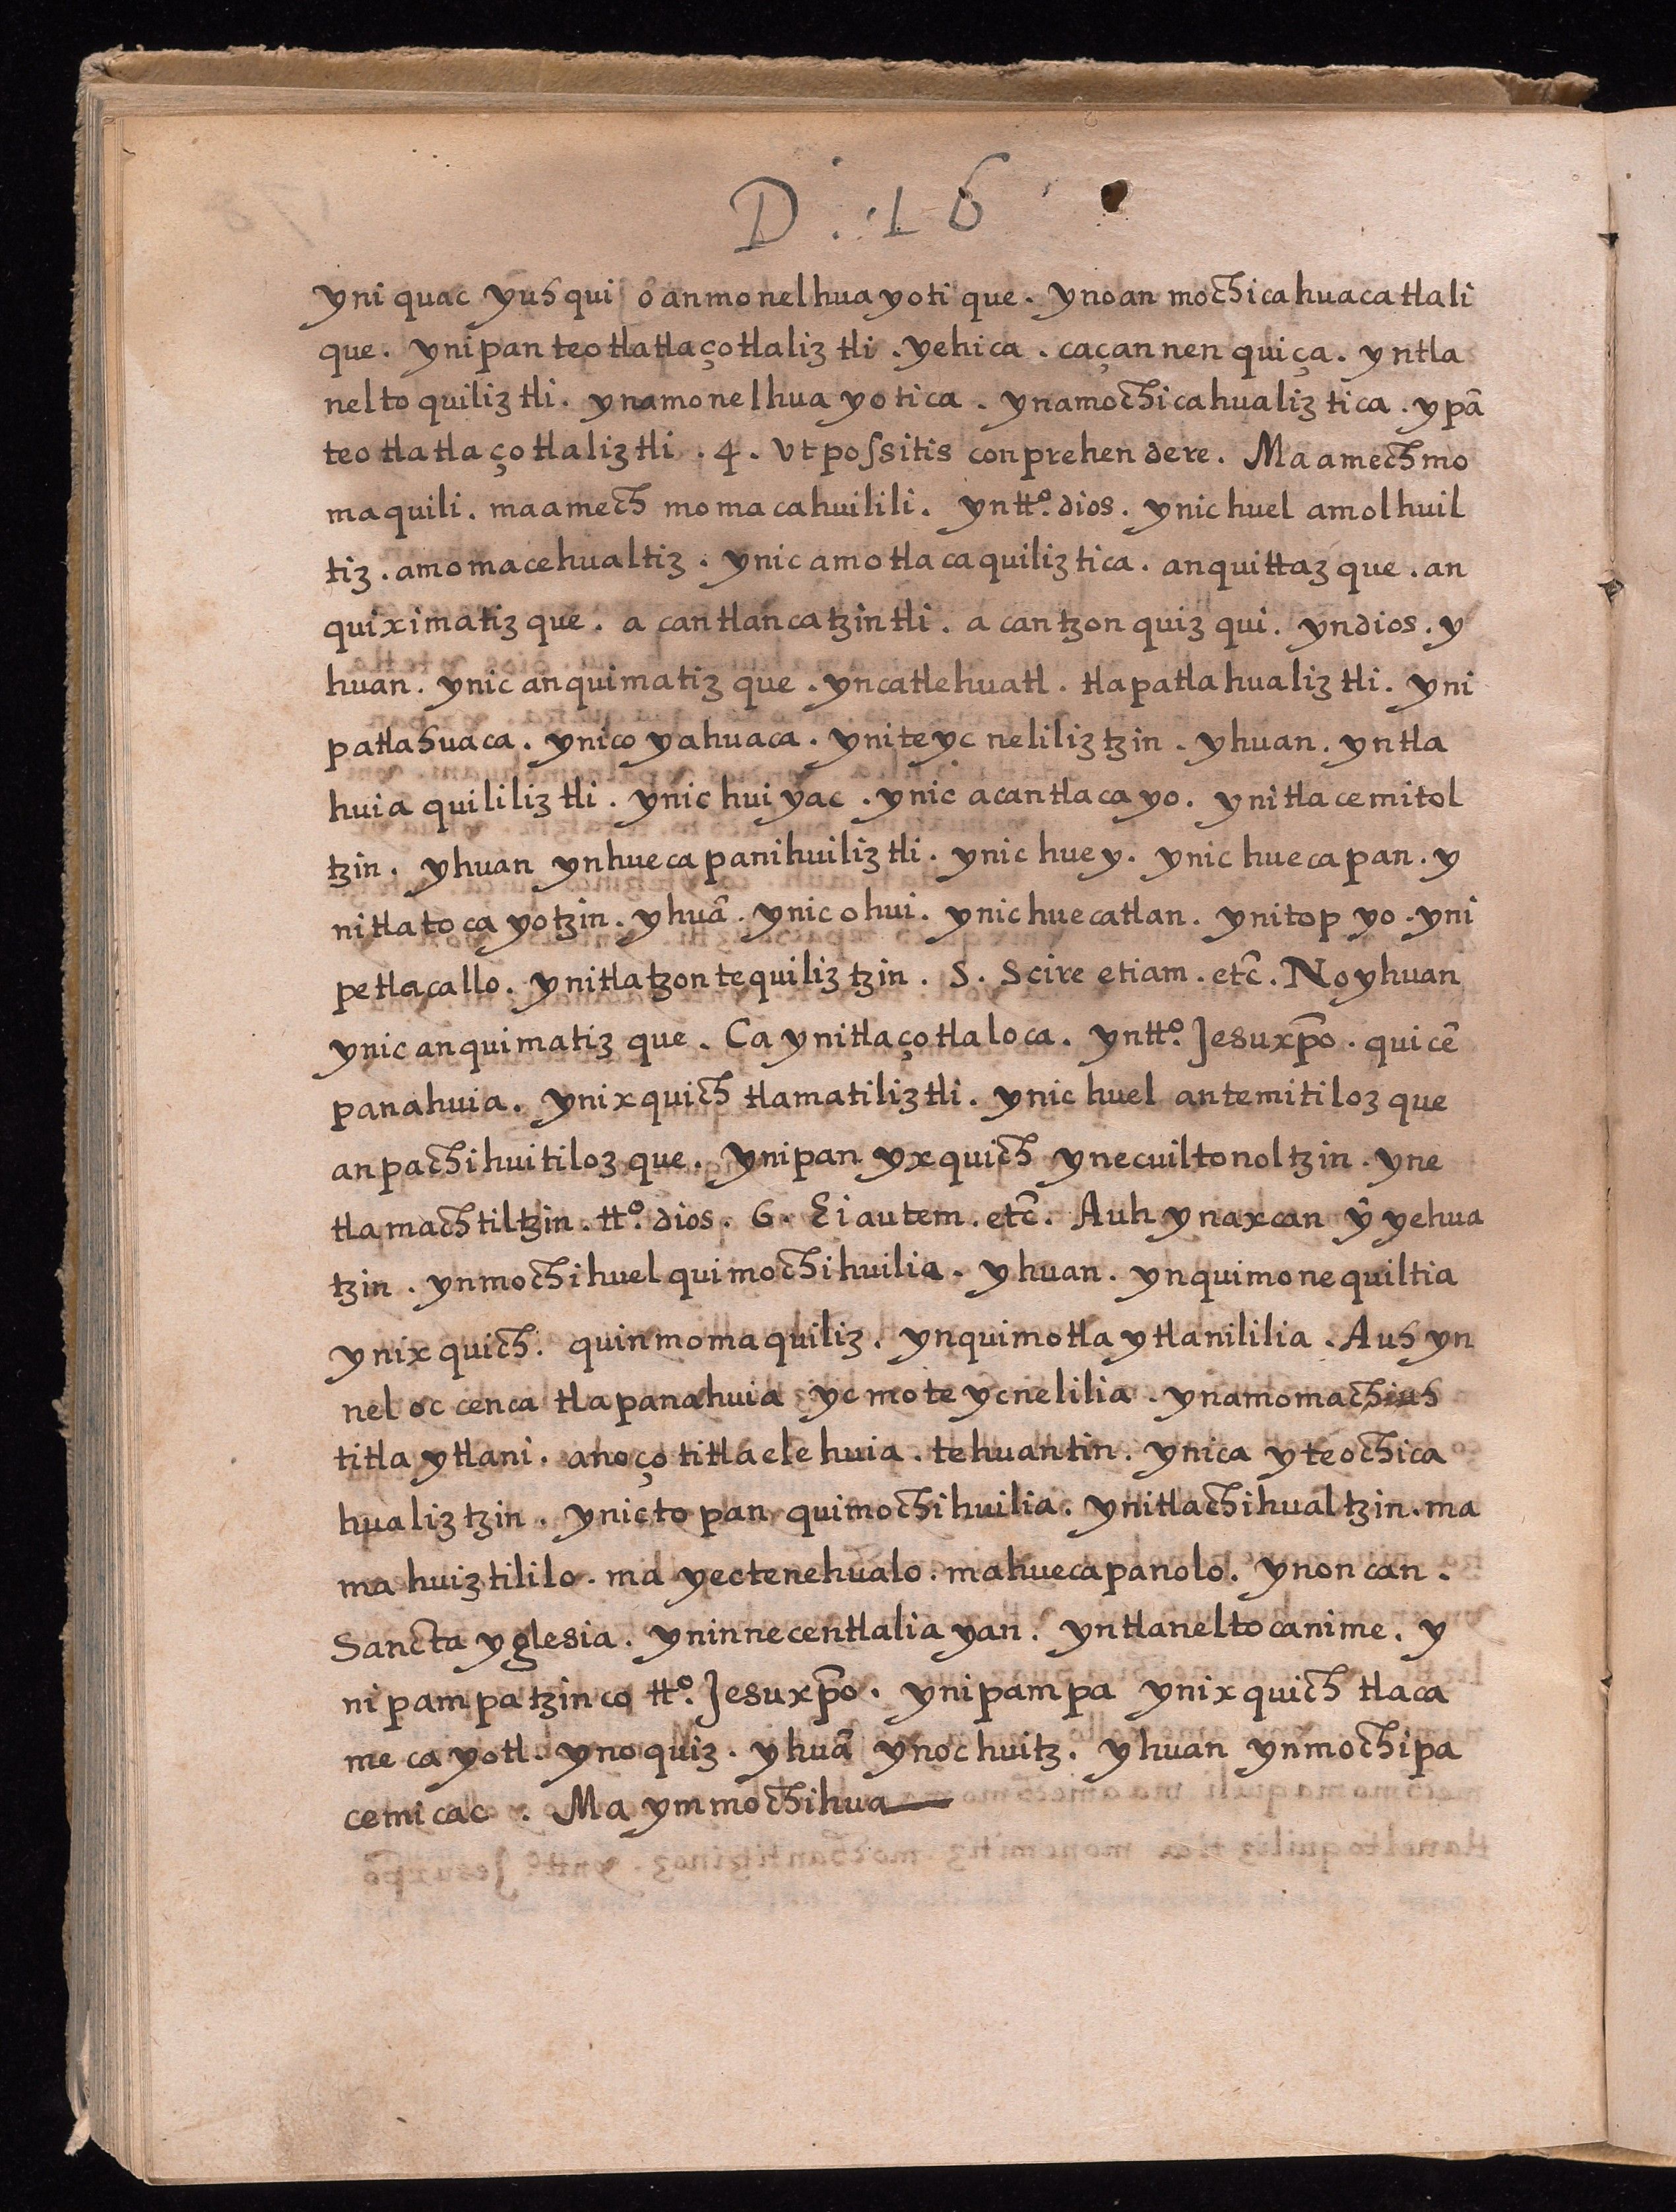 D. 16
yni quac yuhqui oanmonelhuayoti que. ynoan mochicahuacatlali
que. ynipan teotlatlaçotlaliztli. yehica. caçan nen quiça. yntla
neltoquiliztli. ynamonelhuayotica. ynamochicahualiztica. ypā
teotlatlaçotlaliztli. 4. Vt possitis conprehendere. Ma amechmo
maquili. ma amech momacahuilili. yn tto. dios. ynic huel amolhuil
tiz. amomacehualtiz. ynic amotlacaquiliztica. anquittazque. an
quiximatizque. acantlancatzintli. acantzonquizqui. yn dios. y
huan. ynic anquimatizque. yncatlehuatl. tlapatlahualiztli. yni
patlahuaca. ynicoyahuaca. yniteycneliliztzin. yhuan. yntla
huiaquililiztli. ynic huiyac. ynic acantlacayo. ynitlacemitol
tzin. yhuan ynhuecapanihuiliztli. ynic huey. ynic huecapan. y
nitlatocayotzin. yhuā. ynic ohui. ynic huecatlan. ynitopyo. yni
petlacallo. ynitlatzontequiliztzin. 5. Scire etiam. etc̄. No yhuan
ynic anquimatizque. Ca ynitlaçotlaloca. yn tto. Jesuxp̄o. quicē
panahuia. ynixquich tlamatiliztli. ynic huel antemitilozque
anpachihuitilozque. ynipan yxquich ynecuiltonoltzin. yne
tlamachtiltzin. tto. dios. 6. Ei autem. etc̄. Auh ynaxcan ŷ yehua
tzin. ynmochihuelquimochihuilia. yhuan. ynquimonequiltia
ynixquich. quinmomaquiliz. ynquimotlaytlanililia. Auh yn
nel oc cenca tlapanahuia yc moteycnelilia. ynamomachiuh
titlaytlani. anoço titlaelehuia. tehuantin. ynica yteochica
hualiztzin. ynic topan quimochihuilia. ynitlachihualtzin. ma
mahuiztililo. ma yectenehualo. mahuecapanolo. ynoncan.
Sancta yglesia. yninnecentlaliayan. yntlaneltocanime. y
nipampatzinco tto. Jesuxp̄o. ynipampa ynixquich tlaca
mecayotl. ynoquiz. yhuā ynoc huitz. yhuan ynmochipa
cemicac. Ma ymmochihua